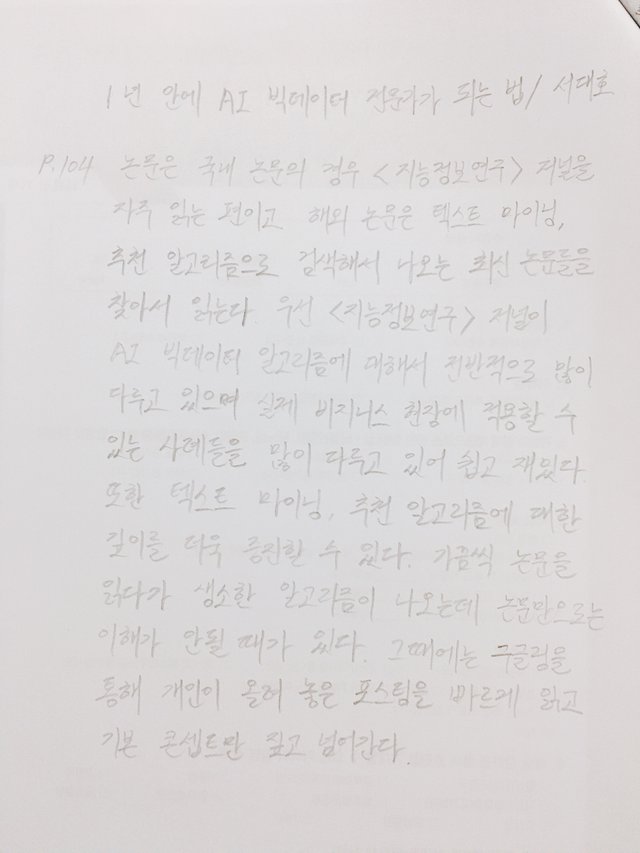 1년 안에 AI 빅데이터 전문가가 되는 법/ 서대호
P.104 논문은 국내 논문의 경우 <지능정보연구> 저널을
자주 읽는 편이고 해외 논문은 텍스트 마이닝,
추천 알고리즘으로 검색해서 나오는 최신 논문들을
찾아서 읽는다. 우선 <지능정보연구> 저널이
AI 빅데이터 알고리즘에 대해서 전반적으로 많이
다루고 있으며 실제 비지니스 현장에 적용할 수
있는 사례들을 많이 다루고 있어 쉽고 재밌다.
또한 텍스트 마이닝, 추천 알고리즘에 대한
깊이를 더욱 증진할 수 있다. 가끔씩 논문을
읽다가 생소한 알고리즘이 나오는데 논문만으로는
이해가 안될 때가 있다. 그때에는 구글링을
통해 개인이 올려 놓은 포스팅을 빠르게 읽고
기본 콘셉트만 짚고 넘어간다.